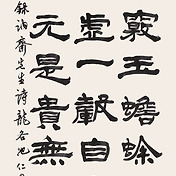 竅玉蟾蜍
虛一自
元是貴無
錄齋先生詩龍谷池仁